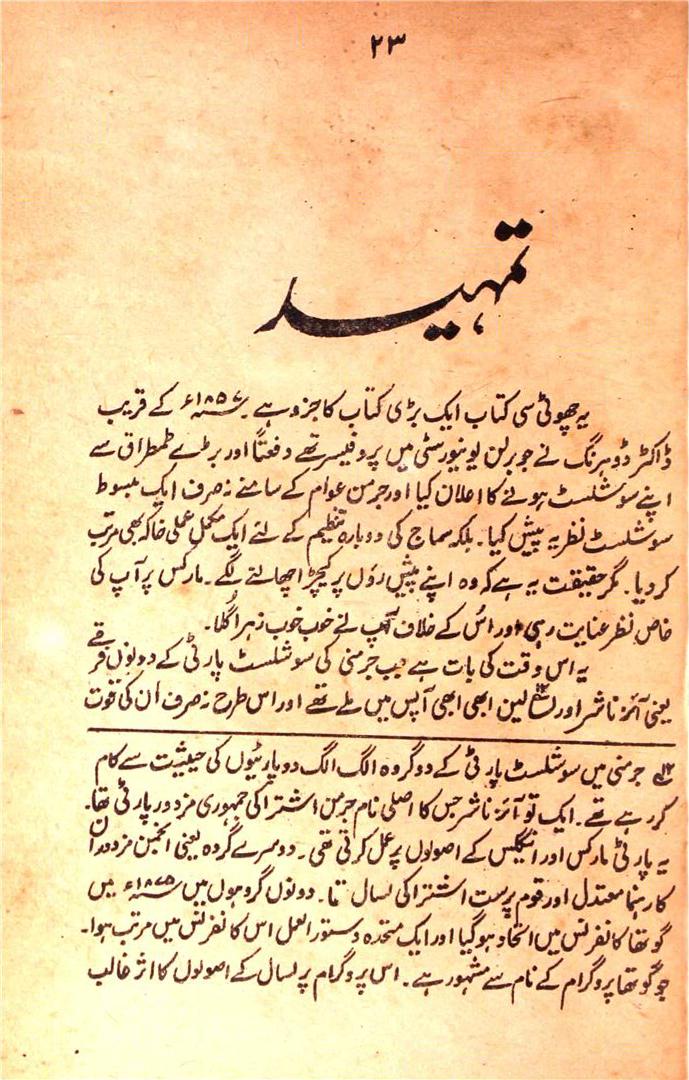 ۲۳
تمہید
یہ چھوٹی سی کتاب ایک بڑی کتاب کا جزو ہے۔ ۱۸۵۷ء کے قریب
ڈاکٹر ڈوہرنگ نے جو برلن یونیورسٹی میں پروفیسر تھے دفعتاً اور بڑے طمطراق سے
اپنے سوشلسٹ ہونے کا اعلان کیا اور جرمن عوام کے سامنے نہ صرف ایک مبسوط
سوشلسٹ نظریہ پیش کیا۔ بلکہ سماج کی دوبارہ تنظیم کے لئے ایک مکمل عملی خاکہ بھی مرتب
کر دیا۔ مگر حقیقت یہ ہے کہ وہ اپنے پیش رؤں پر کیچڑ اچھالنے لگے۔ مارکس پر آپ کی
خاص نظر عنایت رہی اور اُس کے خلاف آپ نے خوب خوب زہر اُگلا۔
یہ اس وقت کی بات ہے جب جرمنی کی سوشلسٹ پارٹی کے دونوں فرقے
یعنی آئزناشر اور لین ابھی ابھی آپس میں ملے تھے اور اس طرح نہ صرف ان کی قوت
جرمنی میں سوشلسٹ پارٹی کے دو گروہ الگ الگ دو پارٹیوں کی حیثیت سے کام
کر رہے تھے۔ ایک تو آئزناشر جس کا اصلی نام جرمن اشتراکی جمہوری مزدور پارٹی تھا۔
یہ پارٹی مارکس اور اینگلس کے اصولوں پر عمل کرتی تھی۔ دوسرے گروہ یعنی انجمن مزدوران
کا رہنما معتدل اور قوم پرست اشتراکی لسال تا۔ دونوں گروہوں میں ۱۸۷۵ء میں
گوتھا کانفرنس میں اتحاد ہوگیا اور ایک متحدہ دستور العمل اس کانفرنس میں مرتب ہوا۔
جو گوتھا پروگرام کے نام سے مشہور ہے۔ اس پروگرام پر لسال کے اصولوں کا اثر غالب